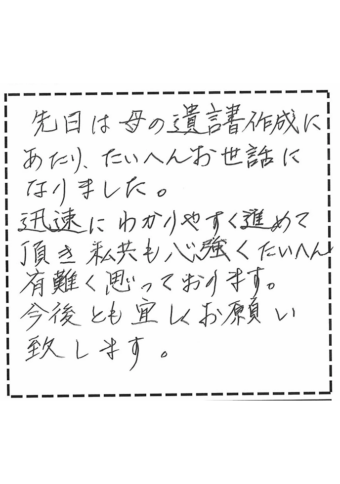 先日は母の遺言書作成に
あたり、たいへんお世話に
なりました。
迅速にわかりやすく進めて
頂き私共も心強くたいへん
有難く思っております。
今後とも宜しくお願い
致します。